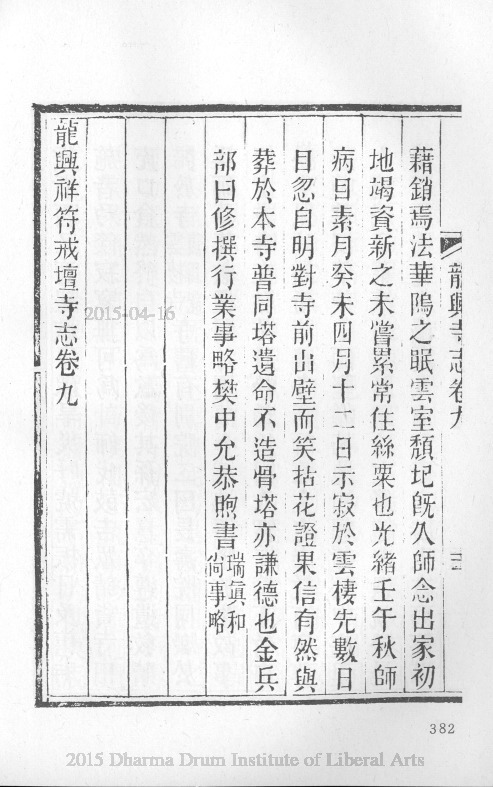 龍興寺志卷九
十二
藉銷焉法華隖之眠雲室頹圮旣久師念出家初
地竭資新之未嘗累常住絲粟也光緒壬午秋師
病目素月癸未四月十二日示寂於雲棲先數日
目忽自明對寺前出壁而笑拈花證果信有然與
葬於本寺普同塔遺命不造骨塔亦謙德也金兵
部曰修撰行業事略樊中允恭煦書瑞眞和
尙事略
龍興祥符戒壇寺志卷九
2015-04-16
382
2015 Dharma Drum Institute of Liberal Arts